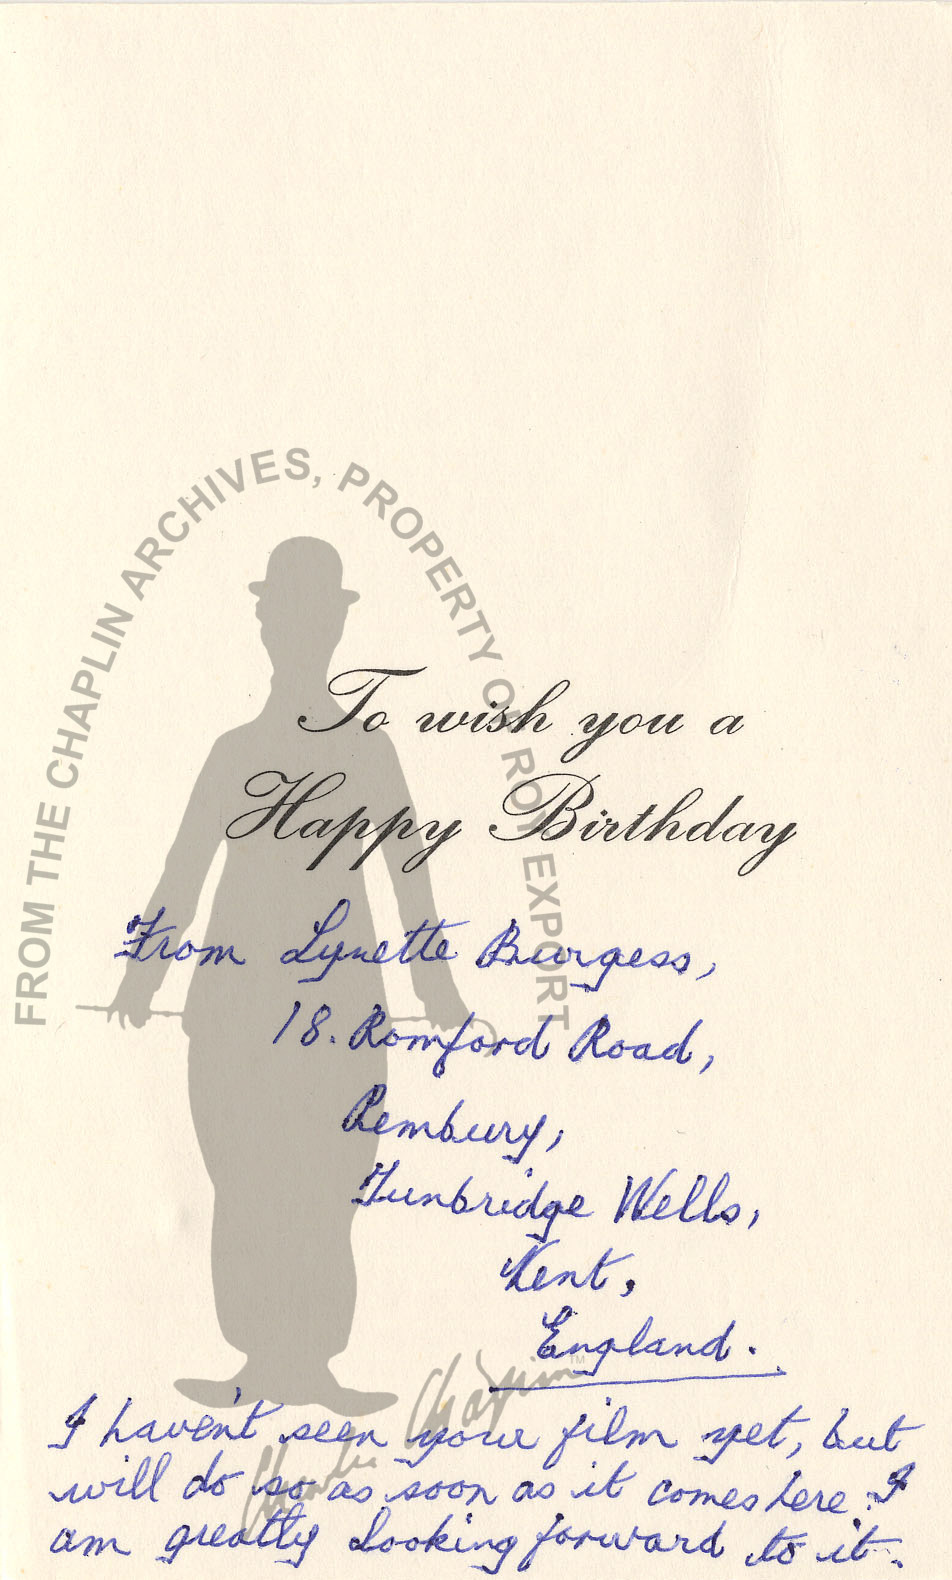 FROM THE CHAPLIN ARCHIVES, PROPERTY OF ROY EXPORT
To wish you a
Happy Birthday
From Lynette Burgess,
18. Romford Road,
Pembury,
Tunbridge Wells,
Kent,
England.
Charlie Chaplin™
I haven't seen your film yet, but
will do so as soon as it comes here. I
am greatly looking forward to it.